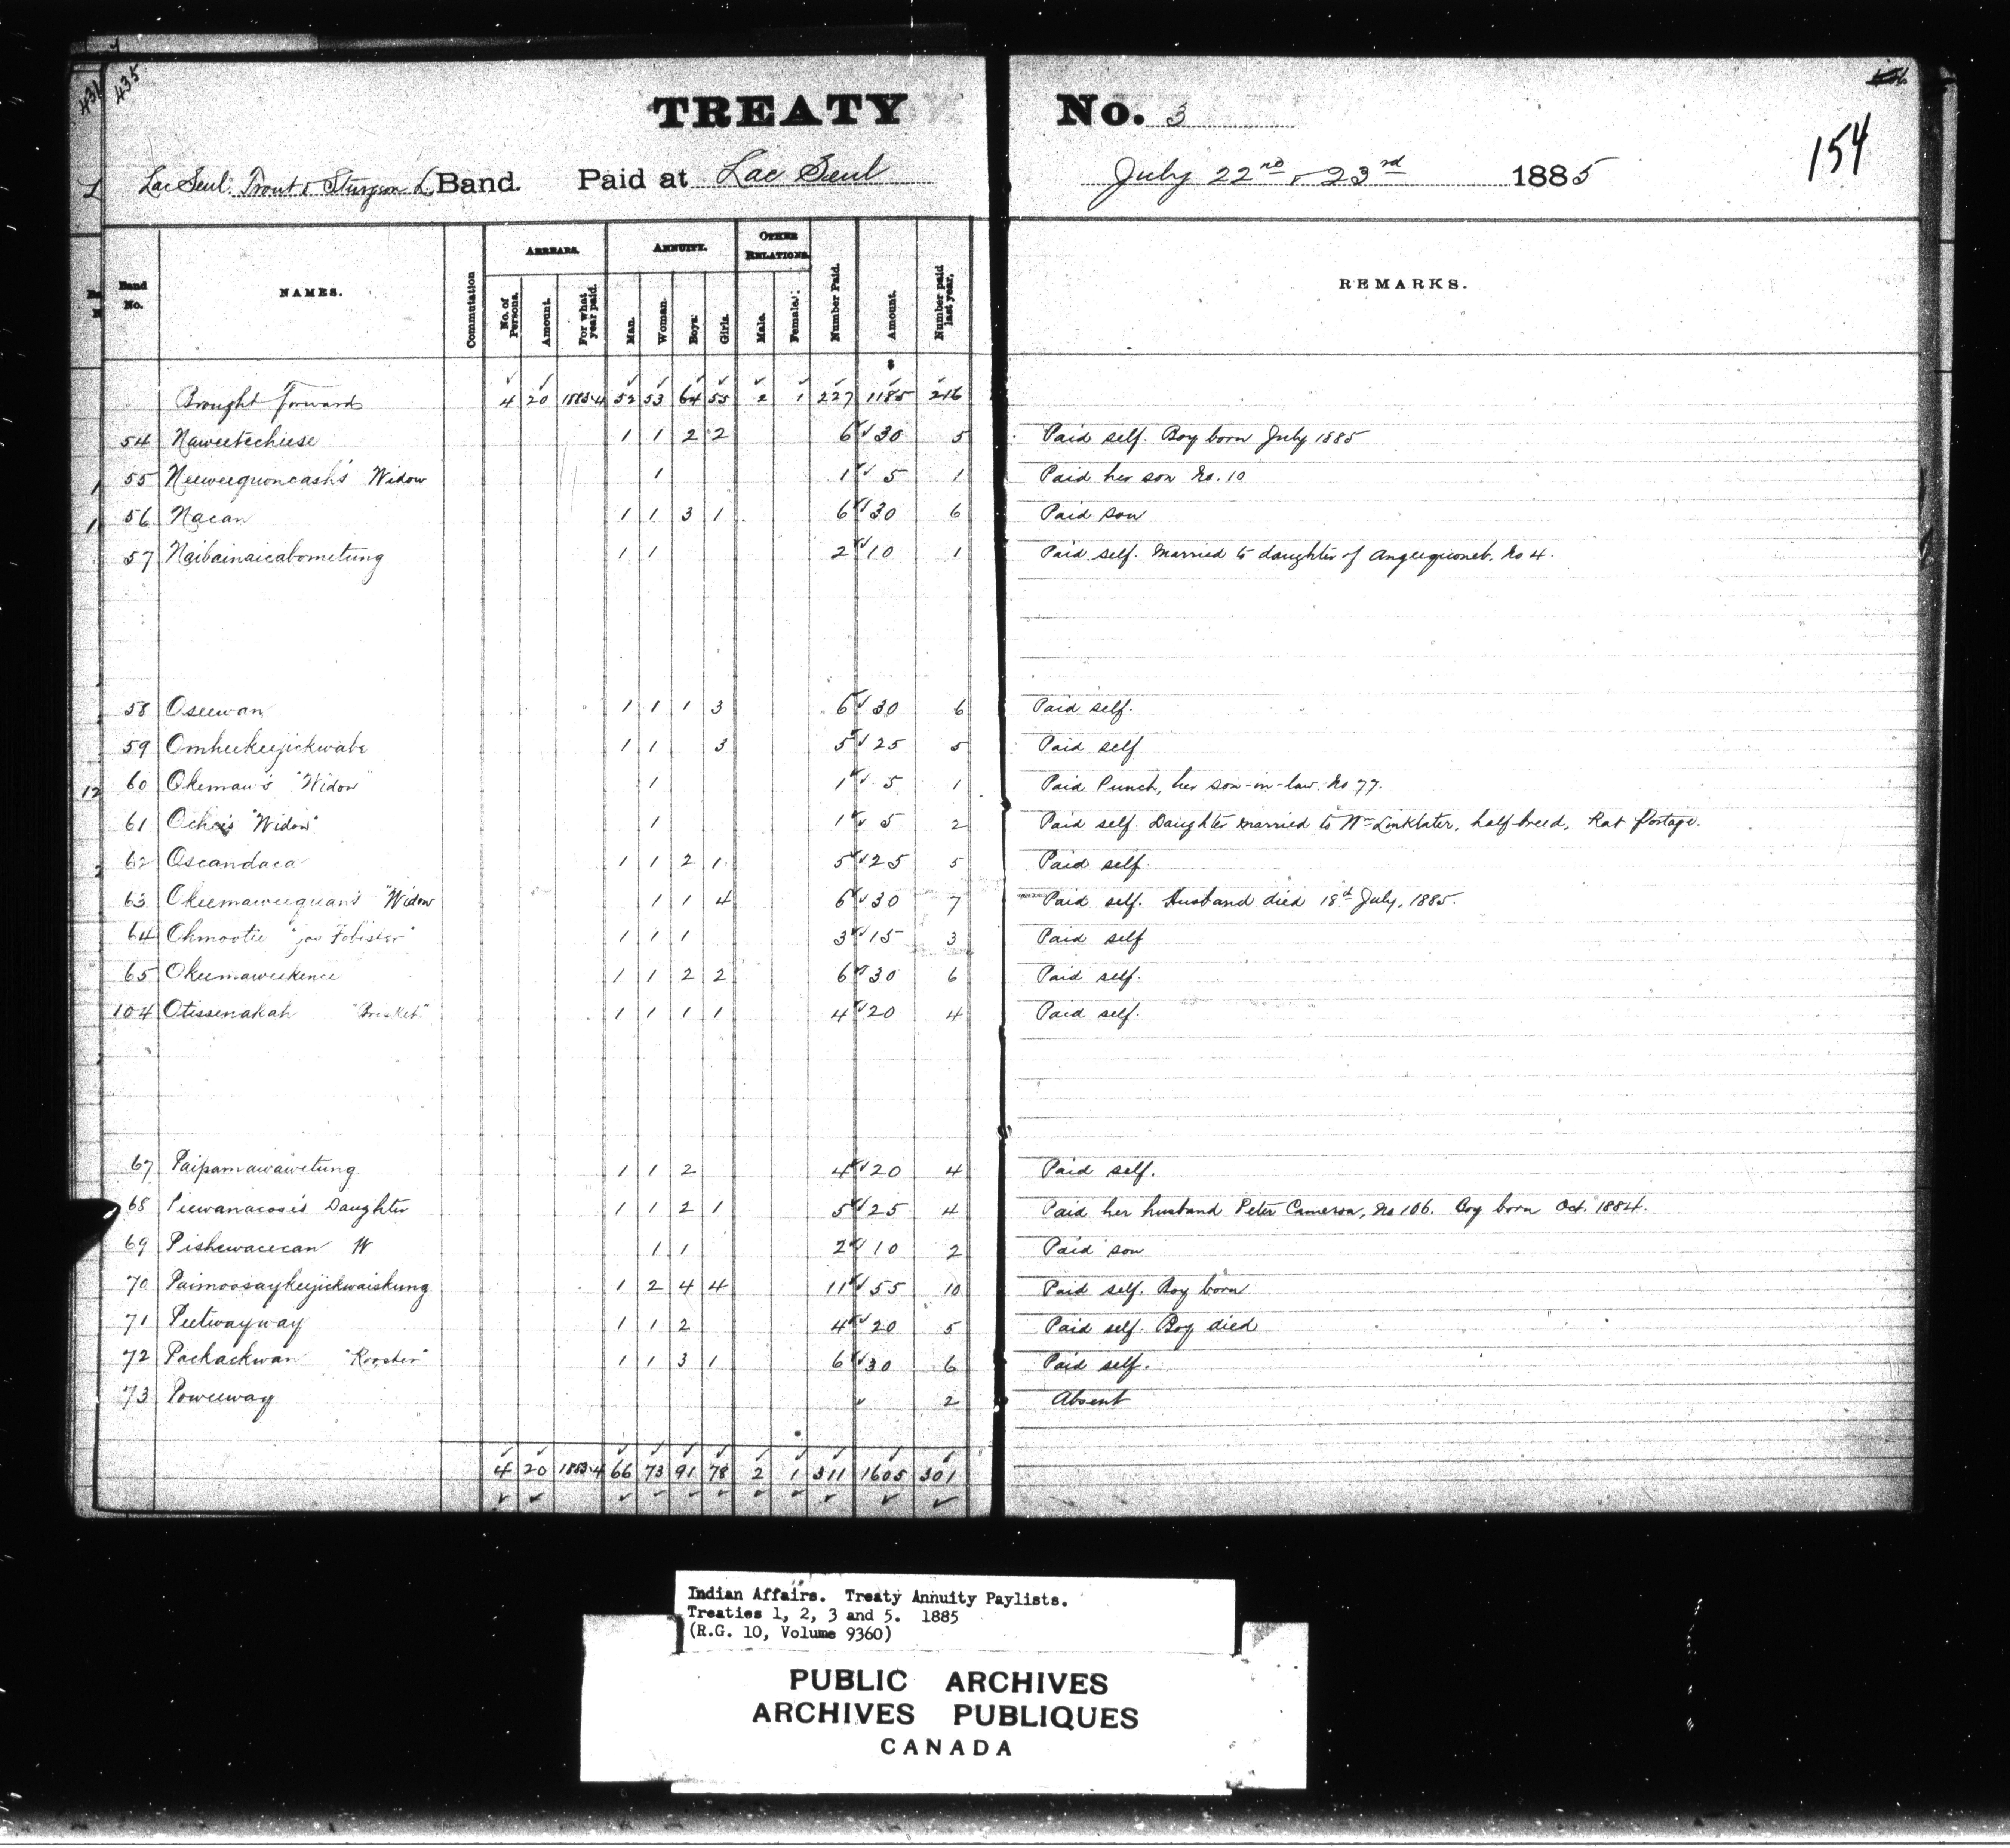 431 435
TREATY No. 3
154
Lac Seul. Trout & Sturgeon L. Band. Paid at Lac Seul July 22nd & 23rd 1885
Band No. NAMES. Commutation ARREARS. No. of Persons. Amount. For what year paid. ANNUITY. Man. Woman. Boys. Girls. OTHER RELATIONS. Male. Female. Number Paid. Amount. Number paid last year. REMARKS.
$
Brought forward 4 20 1883-4 52 53 64 55 2 1 227 1185 216
54 Naweetecheese 1 1 2 2 6 30 5 Paid self. Boy born July 1885
55 Neeweequoncash's Widow 1 1 5 1 Paid her son No. 10
56 Nacan 1 1 3 1 6 30 6 Paid son
57 Naibainaicabometung 1 1 2 10 1 Paid self. Married to daughter of Angeequoneb. No 4.
58 Oseewan 1 1 1 3 6 30 6 Paid self.
59 Omheekeejickwabe 1 1 3 5 25 5 Paid self
60 Okemaw's "Widow" 1 1 5 1 Paid Punch, her son-in-law. No 77.
61 "Widow" 1 1 5 2 Paid self. Daughter married to Wm Linklater, half-breed, Rat Portage.
62 Oscandaca 1 1 2 1 5 25 5 Paid self.
63 Okeemaweequan's "Widow 1 1 4 6 30 7 Paid self. Husband died 18th July, 1885.
64 Okmootie "Joe Fobister" 1 1 1 3 15 3 Paid self
65 Okeemaweekence 1 1 2 2 6 30 6 Paid self.
104 Otissenakah "Brisket" 1 1 1 1 4 20 4 Paid self.
67 Paipamawawetung 1 1 2 4 20 4 Paid self.
68 Peewanacosis Daughter 1 1 2 1 5 25 4 Paid her husband Peter Cameron, No 106. Boy born Oct. 1884.
69 Pishewacecan W 1 1 2 10 2 Paid son
70 Paimoosaykeejickwaiskung 1 2 4 4 11 55 10 Paid self. Boy born
71 Peetwayway 1 1 2 4 20 5 Paid self. Boy died
72 Packackwan "Rooster" 1 1 3 1 6 30 6 Paid self.
73 Poweeway 2 Absent
4 20 1883-4 66 73 91 78 2 1 311 1605 301
Indian Affairs. Treaty Annuity Paylists.
Treaties 1, 2, 3 and 5. 1885
(R.G. 10, Volume 9360)
PUBLIC ARCHIVES
ARCHIVES PUBLIQUES
CANADA